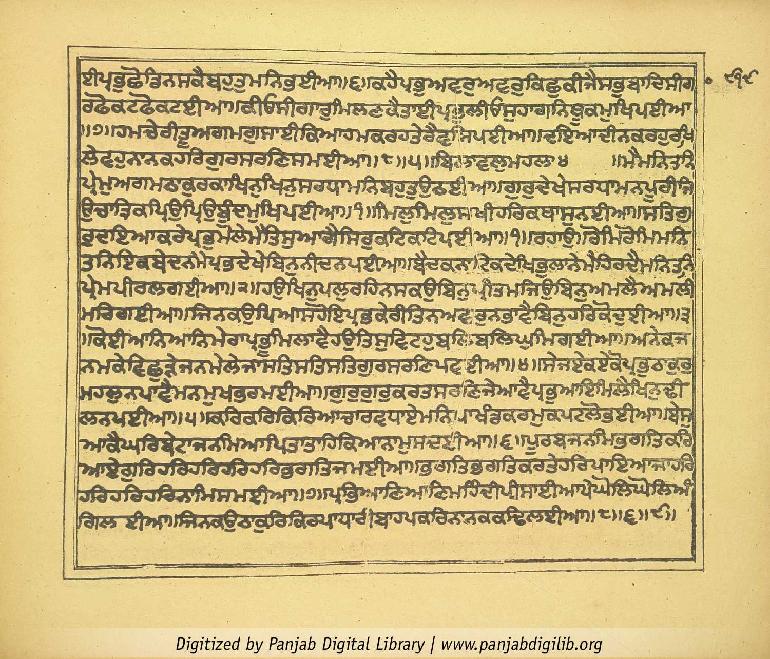 ਈਪ੍ਰਭੁਛੋਡਿਨਸਕੈਬਹੁਤੁਮਨਿਭਈਆ॥੬॥ਕਹੈਪ੍ਰਭੁਅਵਰੁਅਵਰੁਕਿਛੁਕੀਜੈਸਭੁਬਾਦਿਸੀਗਾ
ਰਫੋਕਟਫੋਕਟਈਆ॥ਕੀਓਸੀਗਾਰੁਮਿਲਣਕੈਤਾਈਪ੍ਰਭੁਲੀਓਸੁਹਾਗਨਿਥੂਕਮੁਖਿਪਈਆ
॥੭॥ਹਮਚੇਰੀਤੂਅਗਮਗੁਸਾਈਕਿਆਹਮਕਰਹਤੇਰੈਵਸਿਪਈਆ॥ਦਇਆਦੀਨਕਰਹੁਰਖਿ
ਲੇਵਹੁਨਾਨਕਹਰਿਗੁਰਸਰਣਿਸਮਈਆ॥੮॥੫॥ਬਿਲਾਵਲੁਮਹਲਾ੪ ॥ਮੈਮਨਿਤਨਿ
ਪ੍ਰੇਮੁਅਗਮਠਾਕੁਰਕਾਖਿਨੁਖਿਨੁਸਰਧਾਮਨਿਬਹੁਤੁਉਠਈਆ॥ਗੁਰਦੇਖੇਸਰਧਾਮਨਪੂਰੀਜਿ
ਉਚਾਤ੍ਰਿਕਪ੍ਰਿਉਪ੍ਰਿਉਬੂੰਦਮੁਖਿਪਈਆ॥੧॥ਮਿਲੁਮਿਲੁਸਖੀਹਰਿਕਥਾਸੁਨਈਆ॥ਸਤਿਗੁ
ਰੁਦਇਆਕਰੇਪ੍ਰਭੁਮੇਲੇਮੈਤਿਸੁਆਗੈਸਿਰੁਕਟਿਕਟਿਪਈਆ॥੧॥ਰਹਾਉ॥ਰੋਮਿਰੋਮਿਮਨਿ
ਤਨਿਇਕਬੇਦਨਮੈਪ੍ਰਭਦੇਖੇਬਿਨੁਨੀਦਨਪਈਆ॥ਬੈਦਕਨਾਟਿਕਦੇਖਿਭੁਲਾਨੇਮੈਹਿਰਦੈਮਨਿਤਨਿ
ਪ੍ਰੇਮਪੀਰਲਗਈਆ॥੨॥ਹਉਖਿਨੁਪਲੁਰਹਿਨਸਕਉਬਿਨੁਪ੍ਰੀਤਮਜਿਉਬਿਨੁਅਮਲੈਅਮਲੀ
ਮਰਿਗਈਆ॥ਜਿਨਕਉਪਿਆਸਹੋਇਪ੍ਰਭਕੇਰੀਤਿਨਅਵਰੁਨਭਾਵੈਬਿਨੁਹਰਿਕੋਦੁਈਆ॥੩
॥ਕੋਈਆਨਿਆਨਿਮੇਰਾਪ੍ਰਭੂਮਿਲਾਵੈਹਉਤਿਸੁਵਿਟਹੁਬਲਿਬਲਿਘੁਮਿਗਈਆ॥ਅਨੇਕਜ
ਨਮਕੇਵਿਛੁੜੇਜਨਮੇਲੇਜਾਸਤਿਸਤਿਸਤਿਗੁਰਸਰਣਿਪਵਈਆ॥੪॥ਸੇਜਏਕਏਕੋਪ੍ਰਭੁਠਾਕੁਰੁ
ਮਹਲੁਨਪਾਵੈਮਨਮੁਖਭਰਮਈਆ॥ਗੁਰੁਗੁਰੁਕਰਤਸਰਣਿਜੇਆਵੈਪ੍ਰਭੁਆਇਮਿਲੈਖਿਨੁਢੀ
ਲਨਪਈਆ॥੫॥ਕਰਿਕਰਿਕਿਰਿਆਚਾਰਵਧਾਏਮਨਿਪਾਖੰਡਕਰਮੁਕਪਟਲੋਭਈਆ॥ਬੇਸੁ
ਆਕੈਘਰਿਬੇਟਾਜਨਮਿਆਪਿਤਾਤਾਹਿਕਿਆਨਾਮੁਸਦਈਆ॥੬॥ਪੂਰਬਜਨਮਿਭਗਤਿਕਰਿ
ਆਏਗੁਰਿਹਰਿਹਰਿਹਰਿਹਰਿਭਗਤਿਜਮਈਆ॥ਭਗਤਿਭਗਤਿਕਰਤੇਹਰਿਪਾਇਆਜਾਹਰਿ
ਹਰਿਹਰਿਹਰਿਨਾਮਿਸਮਈਆ॥੭॥ਪ੍ਰਭਿਆਣਿਆਣਿਮਹਿੰਦੀਪੀਸਾਈਆਪੇਘੋਲਿਘੋਲਿਅੰ
ਗਿਲਈਆ॥ਜਿਨਕਉਠਾਕੁਰਿਕਿਰਪਾਧਾਰੀਬਾਹਪਕਰਿਨਾਨਕਕਢਿਲਈਆ॥੮॥੬॥੯॥
Digitized by Panjab Digital Library | www.panjabdigilib.org